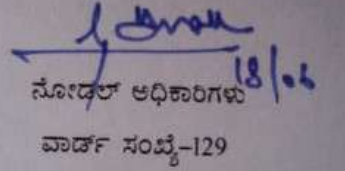 18/06
ನೋಡಲ್ ಅಧಿಕಾರಿಗಳು
ವಾರ್ಡ್ ಸಂಖ್ಯೆ-129